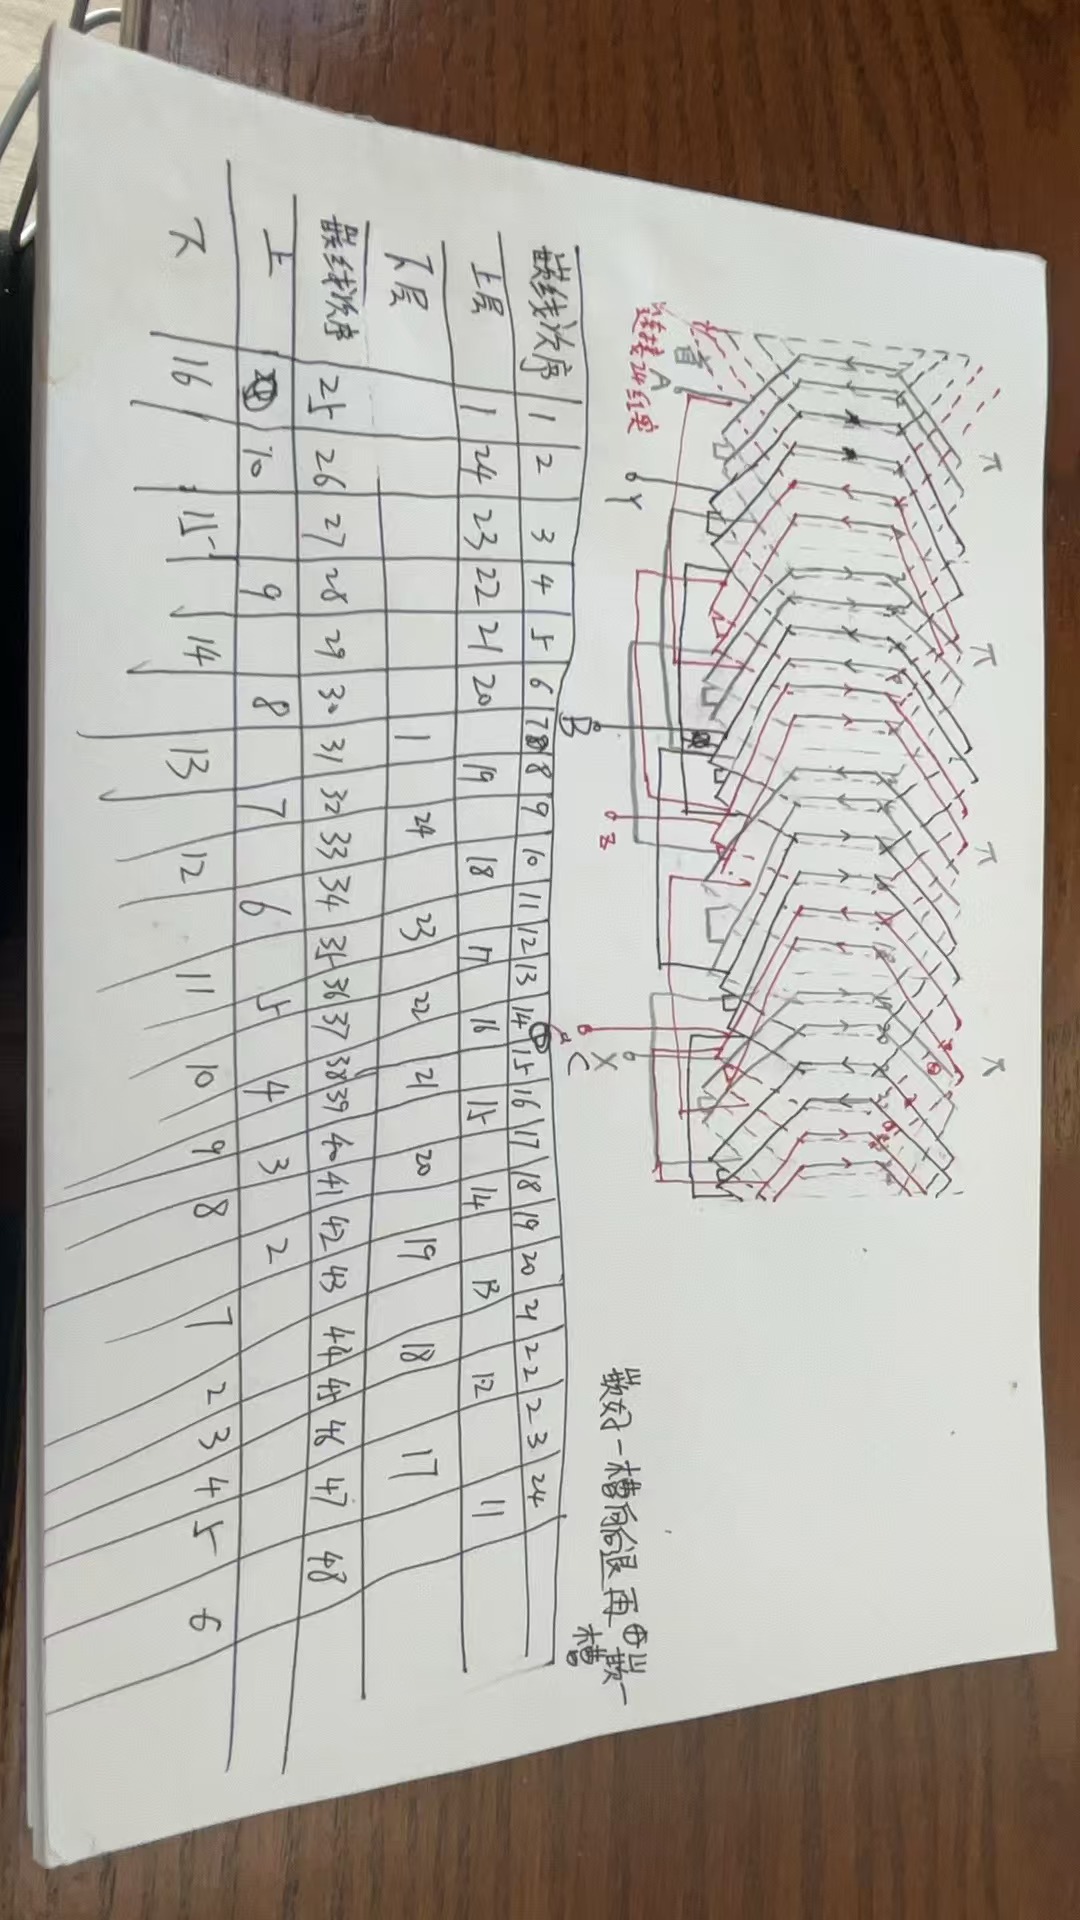 π π π π
19 20
首
A
连接24红实
Y
B
Z
X
C
嵌好一槽向后退再嵌一
槽
嵌线次序 1 2 3 4 5 6 7 8 9 10 11 12 13 14 15 16 17 18 19 20 21 22 23 24
上层 1 24 23 22 21 20 19 18 17 16 15 14 13 12 11
下层 1 24 23 22 21 20 19 18 17
嵌线次序 25 26 27 28 29 30 31 32 33 34 35 36 37 38 39 40 41 42 43 44 45 46 47 48
上 10 9 8 7 6 5 4 3 2
下 16 15 14 13 12 11 10 9 8 7 2 3 4 5 6